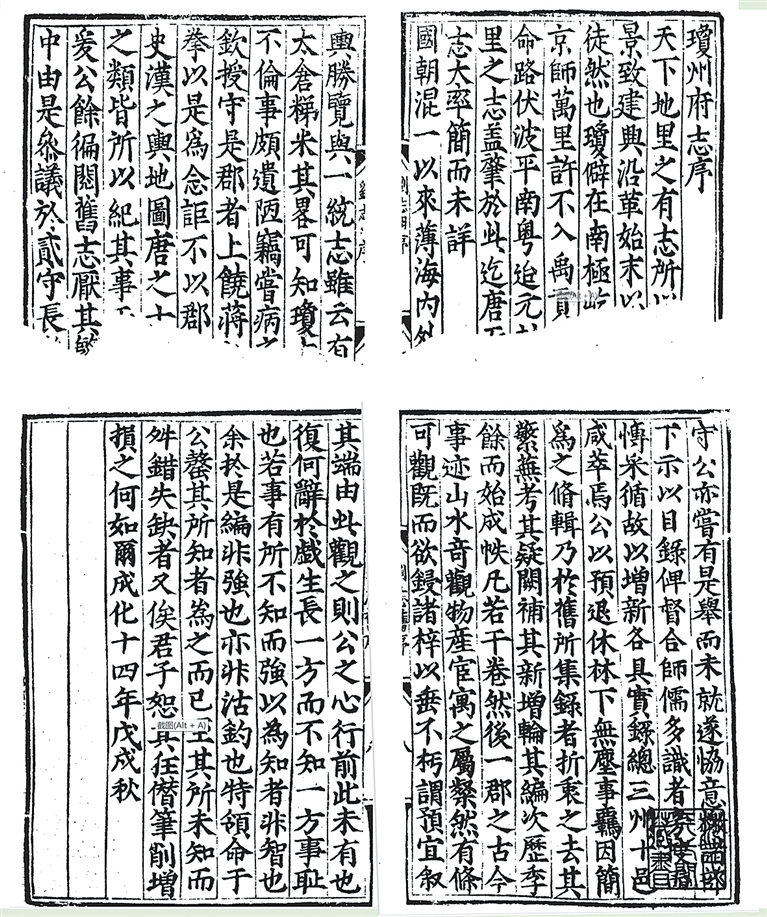 瓊州府志序
天下地里之有志所以
景致建典沿革始末以
徒然也瓊僻在南極
京師萬里許不入禹貢
命路伏波平南粵迨元
里之志蓋肇於此迄唐
志大率簡而未詳
國朝混一以來薄海內外
輿勝覽與一統志雖云有
太倉稊米其畧可知瓊
不倫事頗遺陋竊嘗病之
欽授守是郡者上饒蔣
拳以是爲念詎不以郡
史漢之輿地圖唐之十
之類皆所以紀其事
爰公餘徧閱舊志厭其繁
中由是叅議於貳守長
守公亦嘗有是舉而未就遂恊意
下示以目錄俾督合師儒多識者
慱采循故以增新各具實錄總三州十邑
咸萃焉公以預退休林下無塵事羈因簡
爲之脩輯乃於舊所集錄者折衷之去其
繁蕪考其疑闕補其新增輪其編次歷季
餘而始成帙凡若干卷然後一郡之古今
事迹山水竒觀物産宦寓之屬粲然有條
可觀既而欲鋟諸梓以垂不朽謂預宜叙
其端由此觀之則公之心行前此未有也
復何辭於戲生長一方而不知一方事耻
也若事有所不知而強以為知者非智也
余於是編非強也亦非沽釣也特領命于
公罄其所知者為之而已至其所未知而
舛錯失缺者又俟君子恕其狂僭筆削增
損之何如爾成化十四年戊戌秋
截图(Alt + A)